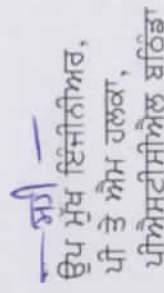 —ਸਹੀ—
ਉਪ ਮੁੱਖ ਇੰਜੀਨੀਅਰ,
ਪੀ ਤੇ ਐਮ ਹਲਕਾ,
ਪੀਐਸਟੀਸੀਐਲ ਬਠਿੰਡਾ